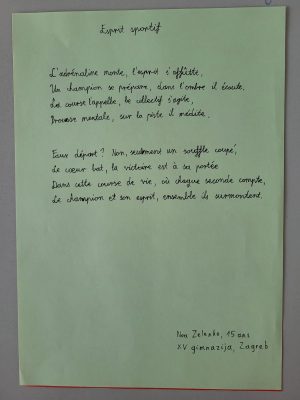 Esprit sportif
L'adrénaline monte, l'esprit s'affûte,
Un champion se prépare, dans l'ombre il écoute.
La course l'appelle, le collectif s'agite,
Prouesse mentale, sur la piste il médite.
Faux départ? Non, seulement un souffle coupé,
Le cœur bat, la victoire est à sa portée
Dans cette course de vie, où chaque seconde compte,
Le champion et son esprit, ensemble ils surmontent.
Zelenko, 15 ans
XV gimnazija, Zagreb